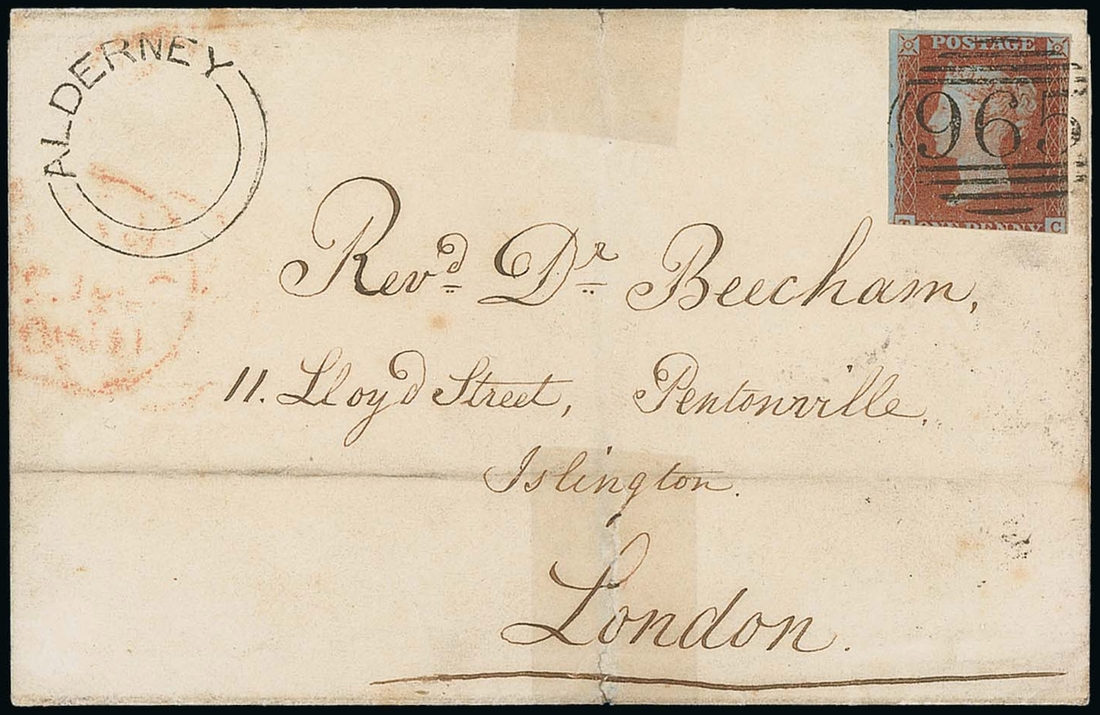 ALDERNEY
POSTAGE
965
T ONE PENNY C
Revd. Dr. Beecham,
11. Lloyd Street, Pentonville,
Islington.
London.